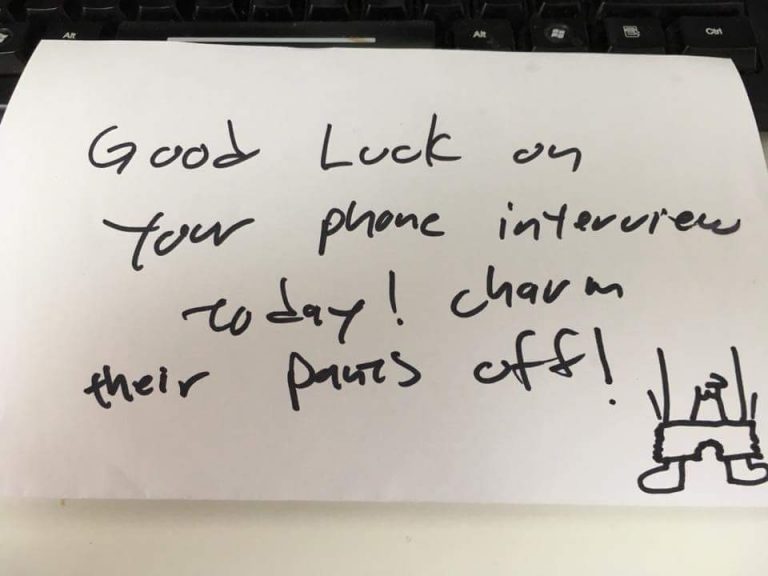 Alt
Alt
Ctrl
Good Luck on
Your phone interview
today! charm
their pants off!